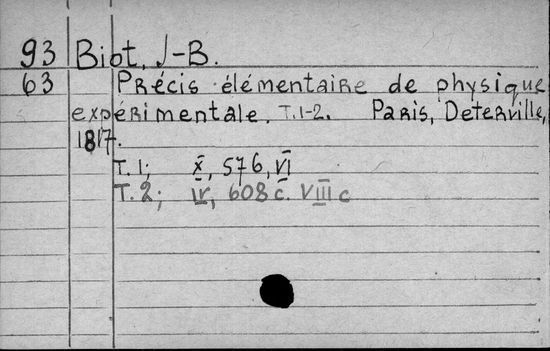 93 Biot, J-B.
63 Précis élémentaire de physique
expérimentale. T.1-2. Paris, Deterville,
1817.
T. 1; X, 576, VI
T. 2; IV, 608 c. VIII c